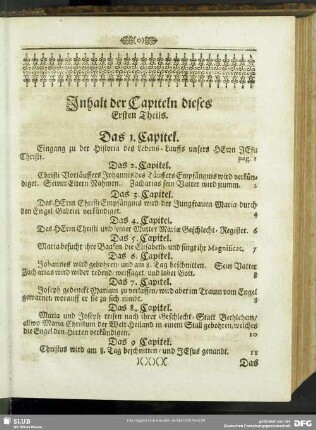 Inhalt der Capiteln dieses
Ersten Theils.
Das 1. Capitel.
Eingang zu der Historia des Lebens-Lauffs unsers HErrn JEsu
Christi. pag. 1
Das 2. Capitel.
Christi Vorläuffers Johannis des Täuffers Empfängnis wird verkün-
diget. Seiner Eltern Nahmen. Zacharias sein Vatter wird stumm. 2
Das 3. Capitel.
Des HErrn Christi Empfängnis wird der Jungfrauen Maria durch
den Engel Gabriel verkündiget. 4
Das 4. Capitel.
Des HErrn Christi und seiner Mutter Mariæ Geschlecht-Register. 6
Das 5. Capitel.
Maria besucht ihre Baasen die Elisabeth, und singt ihr Magnificat. 7
Das 6. Capitel.
Johannes wird gebohren, und am 8. Tag beschnitten. Sein Vatter
Zacharias wird wider redend, weissaget, und lobet Gott. 8
Das 7. Capitel.
Joseph gedenckt Mariam zu verlassen, wird aber im Traum vom Engel
gewarnet, worauff er sie zu sich nimbt. 8
Das 8. Capitel.
Maria und Joseph reisen nach ihrer Geschlecht-Statt Bethlehem,
allwo Maria Christum der Welt Heiland in einem Stall gebohren, welches
die Engel den Hirten verkündigen. 10
Das 9 Capitel.
Christus wird am 8. Tag beschnitten, und JEsus genandt. 11
Das
SLUB
Wir führen Wissen.
gefördert von der
Deutschen Forschungsgemeinschaft
DFG